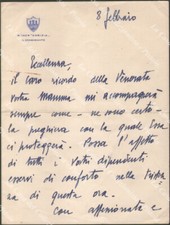 8 febbraio
Eccellenza,
il caro ricordo della Venerata
vostra Mamma mi accompagnerà
sempre come - ne sono certo -
la preghiera con la quale Essa
ci proteggerà. Possa l'affetto
di tutti i vostri dipendenti
esservi di conforto nella tristez
za di questa ora.
con affezionata e